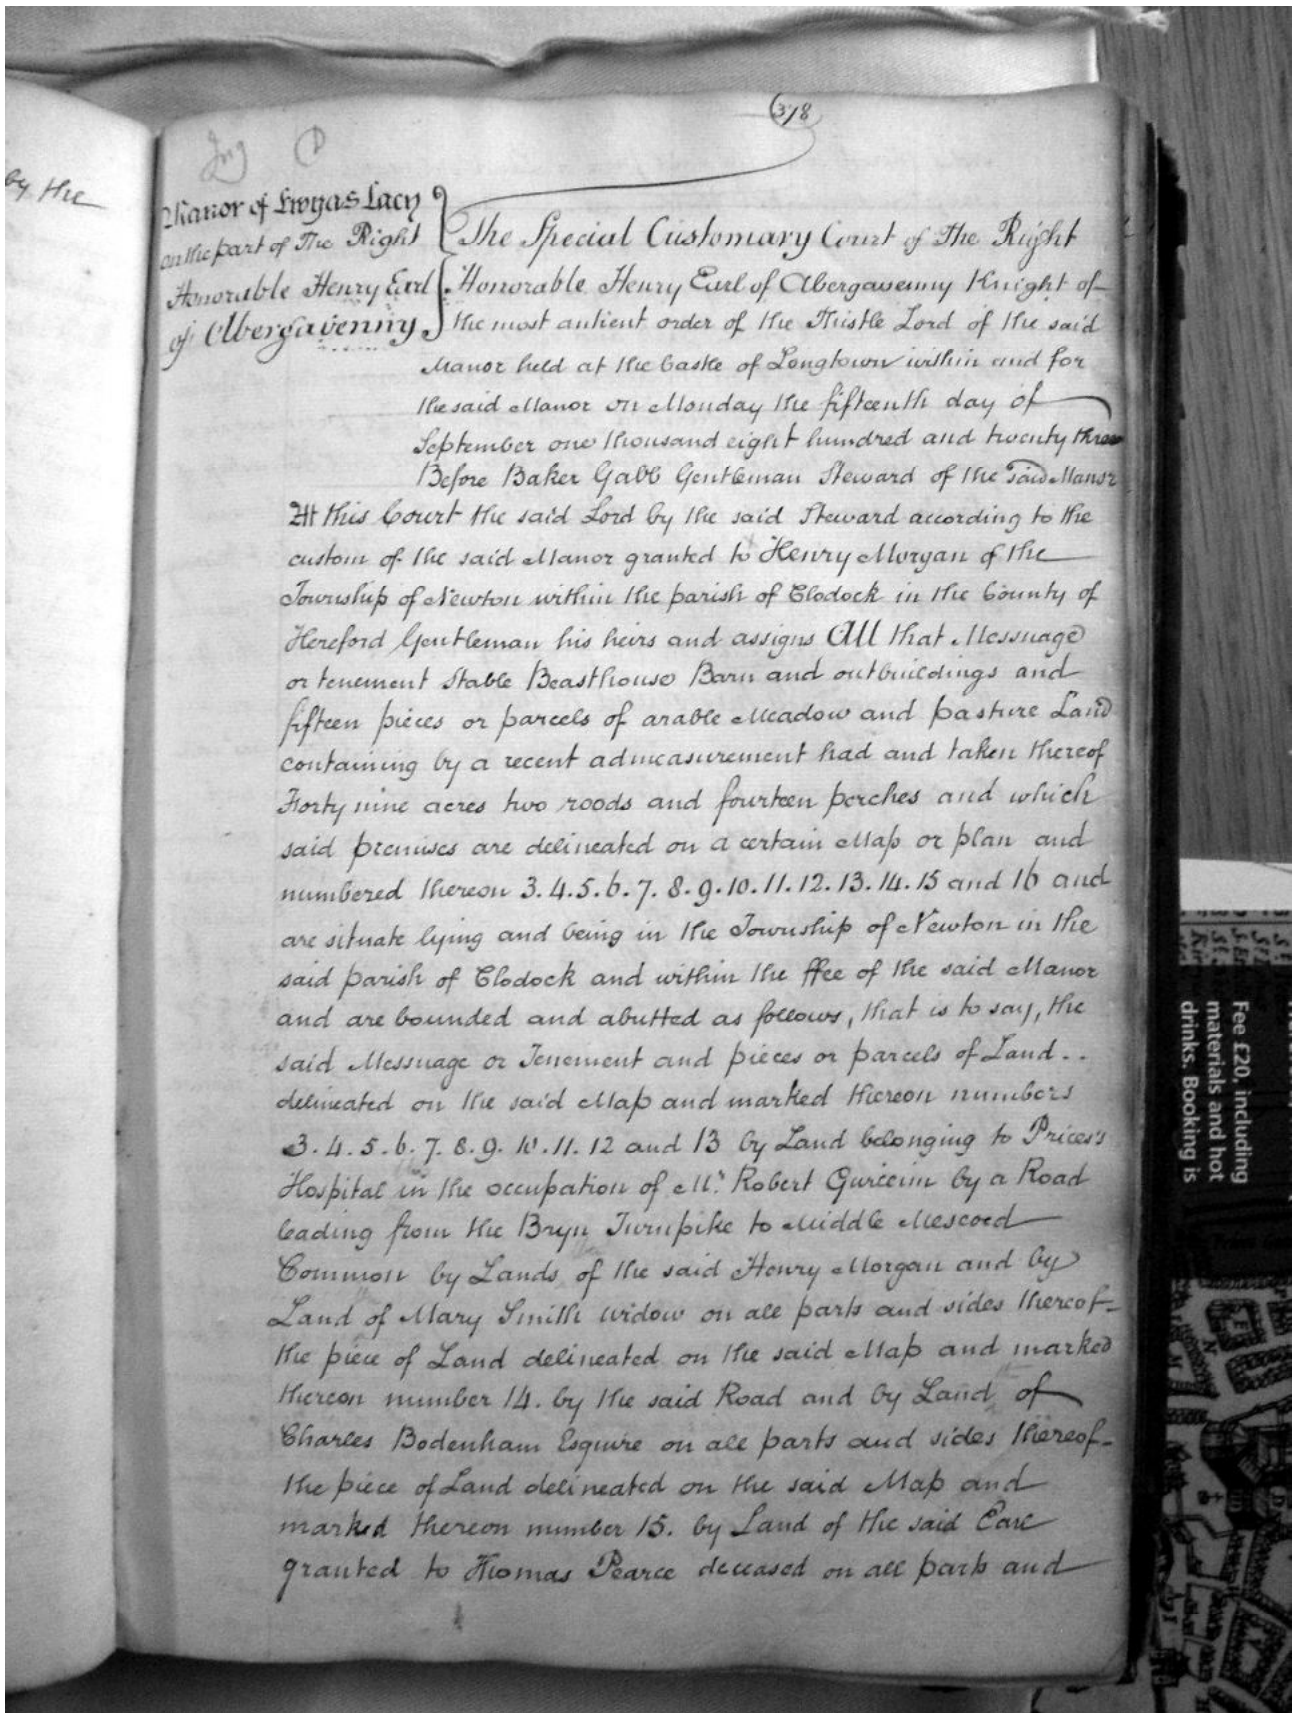 by the
378
Manor of Ewyas Lacy
on the part of The Right
Honorable Henry Earl
of Abergavenny
The Special Customary Court of The Right
Honorable Henry Earl of Abergavenny Knight of
the most antient order of the Thistle Lord of the said
Manor held at the Castle of Longtown within and for
the said Manor on Monday the fifteenth day of
September one thousand eight hundred and twenty three
Before Baker Gabb Gentleman Steward of the said Manor
At this Court the said Lord by the said Steward according to the
custom of the said Manor granted to Henry Morgan of the
Township of Newton within the parish of Clodock in the County of
Hereford Gentleman his heirs and assigns All that Messuage
or tenement Stable Beasthouse Barn and outbuildings and
fifteen pieces or parcels of arable Meadow and pasture Land
containing by a recent admeasurement had and taken thereof
Forty nine acres two roods and fourteen perches and which
said premises are delineated on a certain Map or plan and
numbered thereon 3. 4. 5. 6. 7. 8. 9. 10. 11. 12. 13. 14. 15 and 16 and
are situate lying and being in the Township of Newton in the
said parish of Clodock and within the ffee of the said Manor
and are bounded and abutted as follows, that is to say, the
said Messuage or Tenement and pieces or parcels of Land . .
delineated on the said Map and marked thereon numbers
3. 4. 5. 6. 7. 8. 9. 10. 11. 12 and 13 by Land belonging to Prices's
Hospital in the occupation of Mr. Robert by a Road
leading from the Bryn Turnpike to Middle Mescoed
Common by Lands of the said Henry Morgan and by
Land of Mary Smith widow on all parts and sides thereof
the piece of Land delineated on the said Map and marked
thereon number 14. by the said Road and by Land of
Charles Bodenham Esquire on all parts and sides thereof
the piece of Land delineated on the said Map and
marked thereon number 15. by Land of the said Earl
granted to Thomas Pearce deceased on all parts and
Fee £20, including
materials and hot
drinks. Booking is